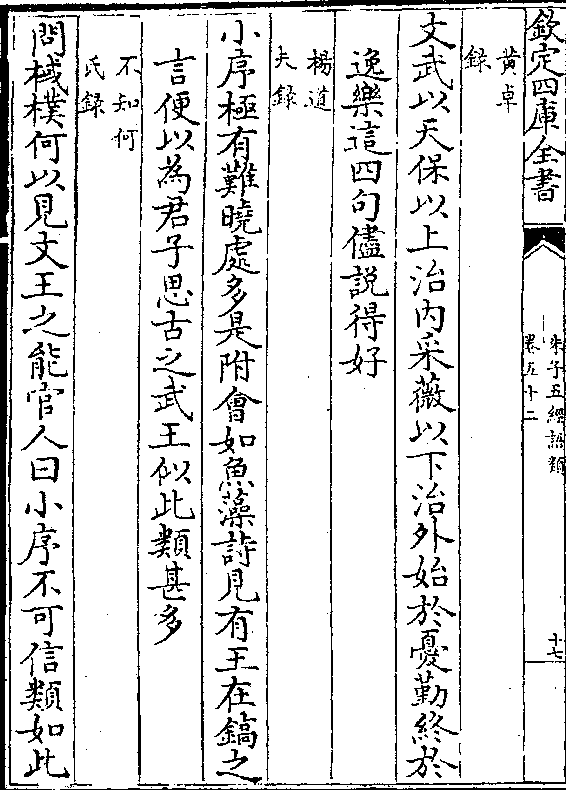 欽定四庫全書
朱子五經語類
卷五十二
十七
黃卓
錄
文武以天保以上治內采薇以下治外始於憂勤終於
逸樂這四句儘說得好
楊道
夫錄
小序極有難曉處多是附會如魚藻詩見有王在鎬之
言便以為君子思古之武王似此類甚多
不知何
氏錄
問棫樸何以見文王之能官人曰小序不可信類如此